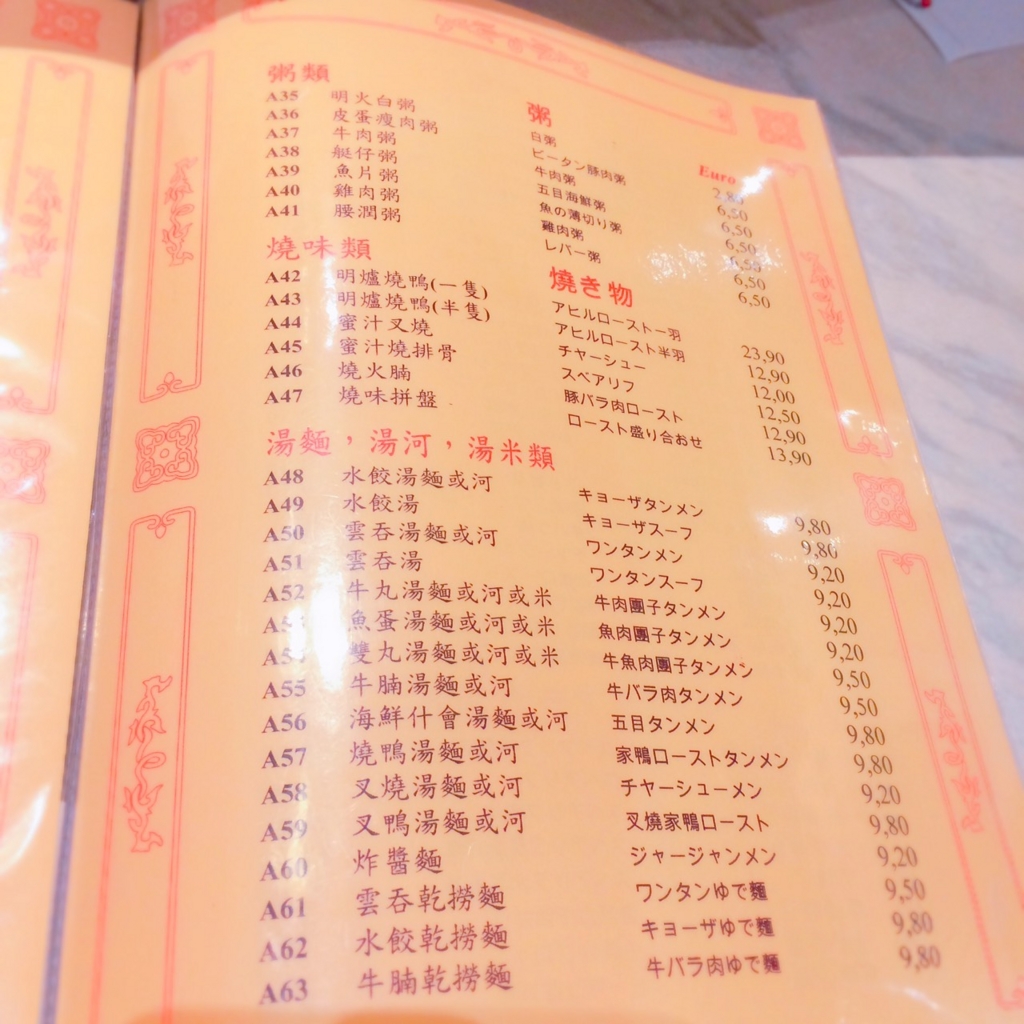 粥類 粥 Euro
A35 明火白粥 白粥 2,80
A36 皮蛋瘦肉粥 ピータン豚肉粥 6,50
A37 牛肉粥 牛肉粥 6,50
A38 艇仔粥 五目海鮮粥 6,50
A39 魚片粥 魚の薄切り粥 6,50
A40 雞肉粥 雞肉粥 6,50
A41 腰潤粥 レバー粥 6,50
燒味類 燒き物
A42 明爐燒鴨(一隻) アヒルロースト一羽 23,90
A43 明爐燒鴨(半隻) アヒルロースト半羽 12,90
A44 蜜汁叉燒 チャーシュー 12,00
A45 蜜汁燒排骨 スペアリフ 12,50
A46 燒火腩 豚バラ肉ロースト 12,90
A47 燒味拼盤 ロースト盛り合おせ 13,90
湯麵，湯河，湯米類
A48 水餃湯麵或河 キョーザタンメン 9,80
A49 水餃湯 キョーザスーフ 9,80
A50 雲吞湯麵或河 ワンタンメン 9,20
A51 雲吞湯 ワンタンスーフ 9,20
A52 牛丸湯麵或河或米 牛肉團子タンメン 9,20
魚蛋湯麵或河或米 魚肉團子タンメン 9,20
雙丸湯麵或河或米 牛魚肉團子タンメン 9,50
A55 牛腩湯麵或河 牛バラ肉タンメン 9,50
A56 海鮮什會湯麵或河 五目タンメン 9,80
A57 燒鴨湯麵或河 家鴨ローストタンメン 9,80
A58 叉燒湯麵或河 チャーシューメン 9,20
A59 叉鴨湯麵或河 叉燒家鴨ロースト 9,80
A60 炸醬麵 ジャージャンメン 9,20
A61 雲吞乾撈麵 ワンタンゆで麵 9,50
A62 水餃乾撈麵 キョーザゆで麵 9,80
A63 牛腩乾撈麵 牛バラ肉ゆで麵 9,80